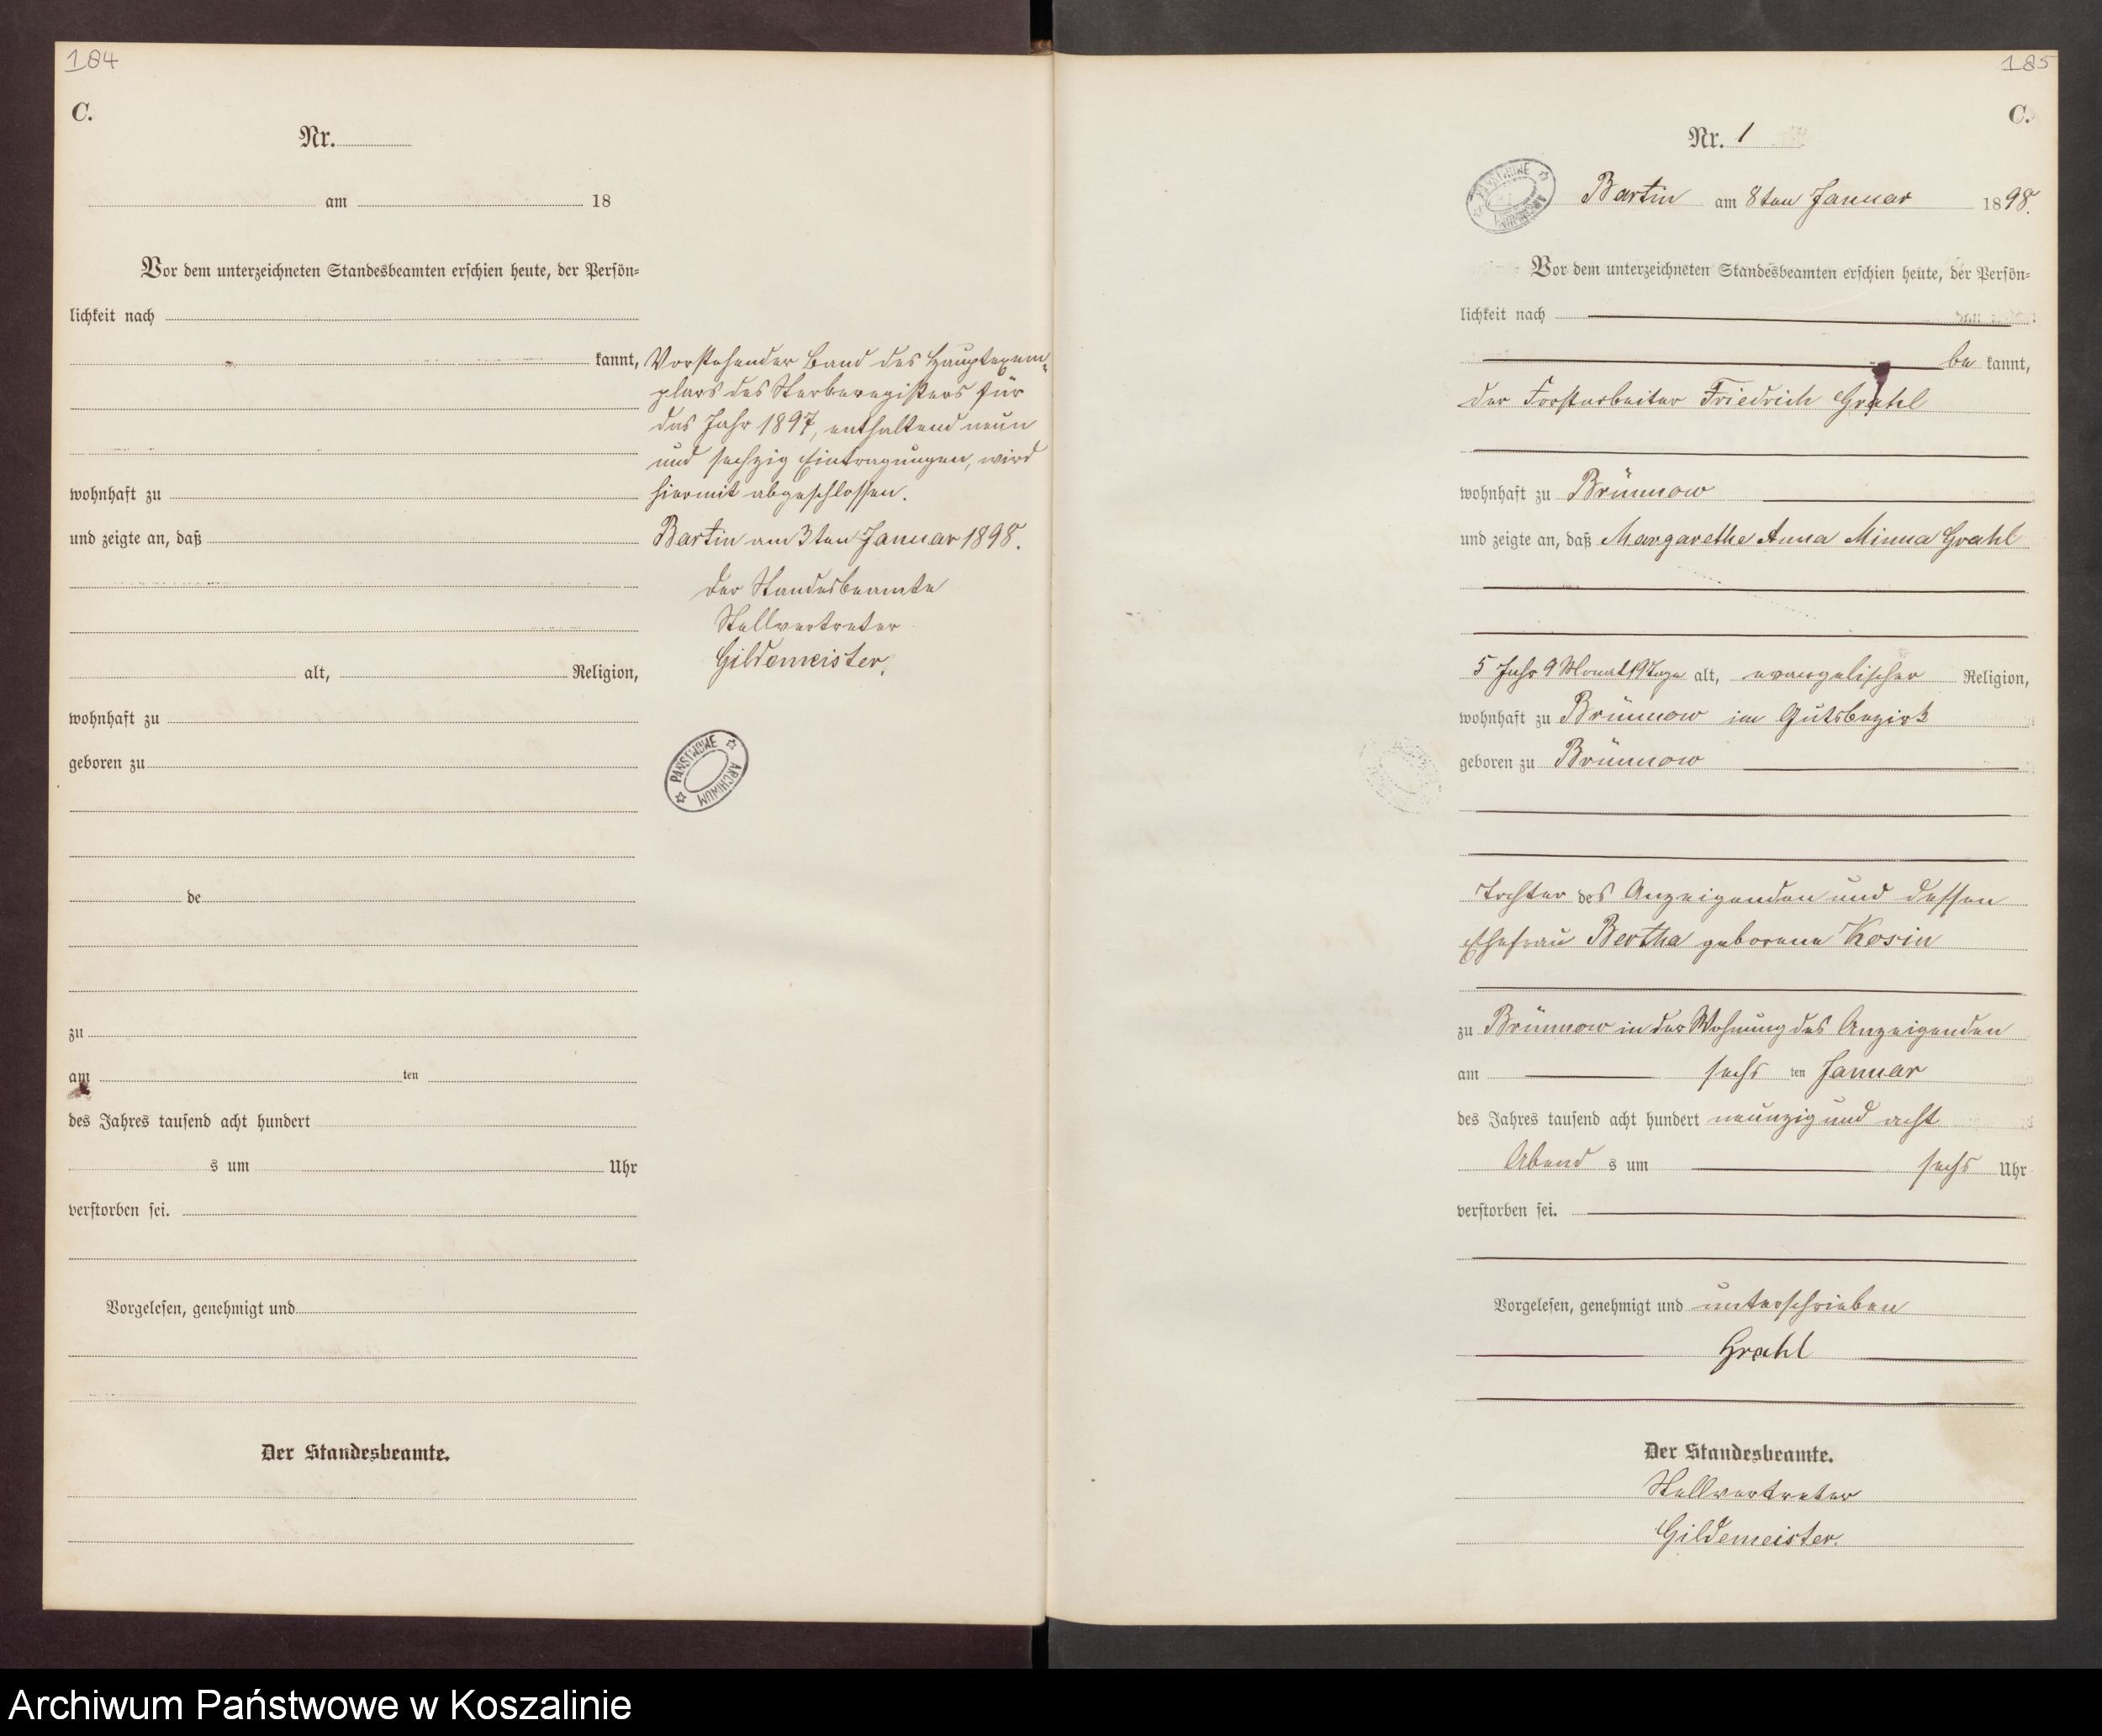 184
C.
Nr.
am 18
Vor dem unterzeichneten Standesbeamten erschien heute, der Persön=
lichkeit nach
kannt,
wohnhaft zu
und zeigte an, daß
alt, Religion,
wohnhaft zu
geboren zu
de
zu
am ten
des Jahres tausend acht hundert
s um Uhr
verstorben sei.
Vorgelesen, genehmigt und
Der Standesbeamte.
Vorstehender Band des Hauptexem„
plars des Sterberegisters für
das Jahr 1897, enthaltend neun
und sechzig Eintragungen, wird
hiermit abgeschlossen.
Bartin am 3ten Januar 1898.
Der Standesbeamte
Stellvertreter
Gildemeister.
PAŃSTWOWE ARCHIWUM
185
C.
Nr. 1
PAŃSTWOWE ARCHIWUM
Bartin am 8ten Januar 1898.
Vor dem unterzeichneten Standesbeamten erschien heute, der Persön=
lichkeit nach
be kannt,
der Forstarbeiter Friedrich Grahl
wohnhaft zu Brünnow
und zeigte an, daß Margarethe Anna Minna Grahl
5 Jahr 9 Monat 19 Tage alt, evangelischer Religion,
wohnhaft zu Brünnow im Gutsbezirk
geboren zu Brünnow
Tochter des Anzeigenden und dessen
Ehefrau Bertha geborene Kosin
zu Brünnow in der Wohnung des Anzeigenden
am sechs ten Januar
des Jahres tausend acht hundert neunzig und acht
Abend s um sechs Uhr
verstorben sei.
Vorgelesen, genehmigt und unterschrieben
Grahl
Der Standesbeamte.
Stellvertreter
Gildemeister.
Archiwum Państwowe w Koszalinie